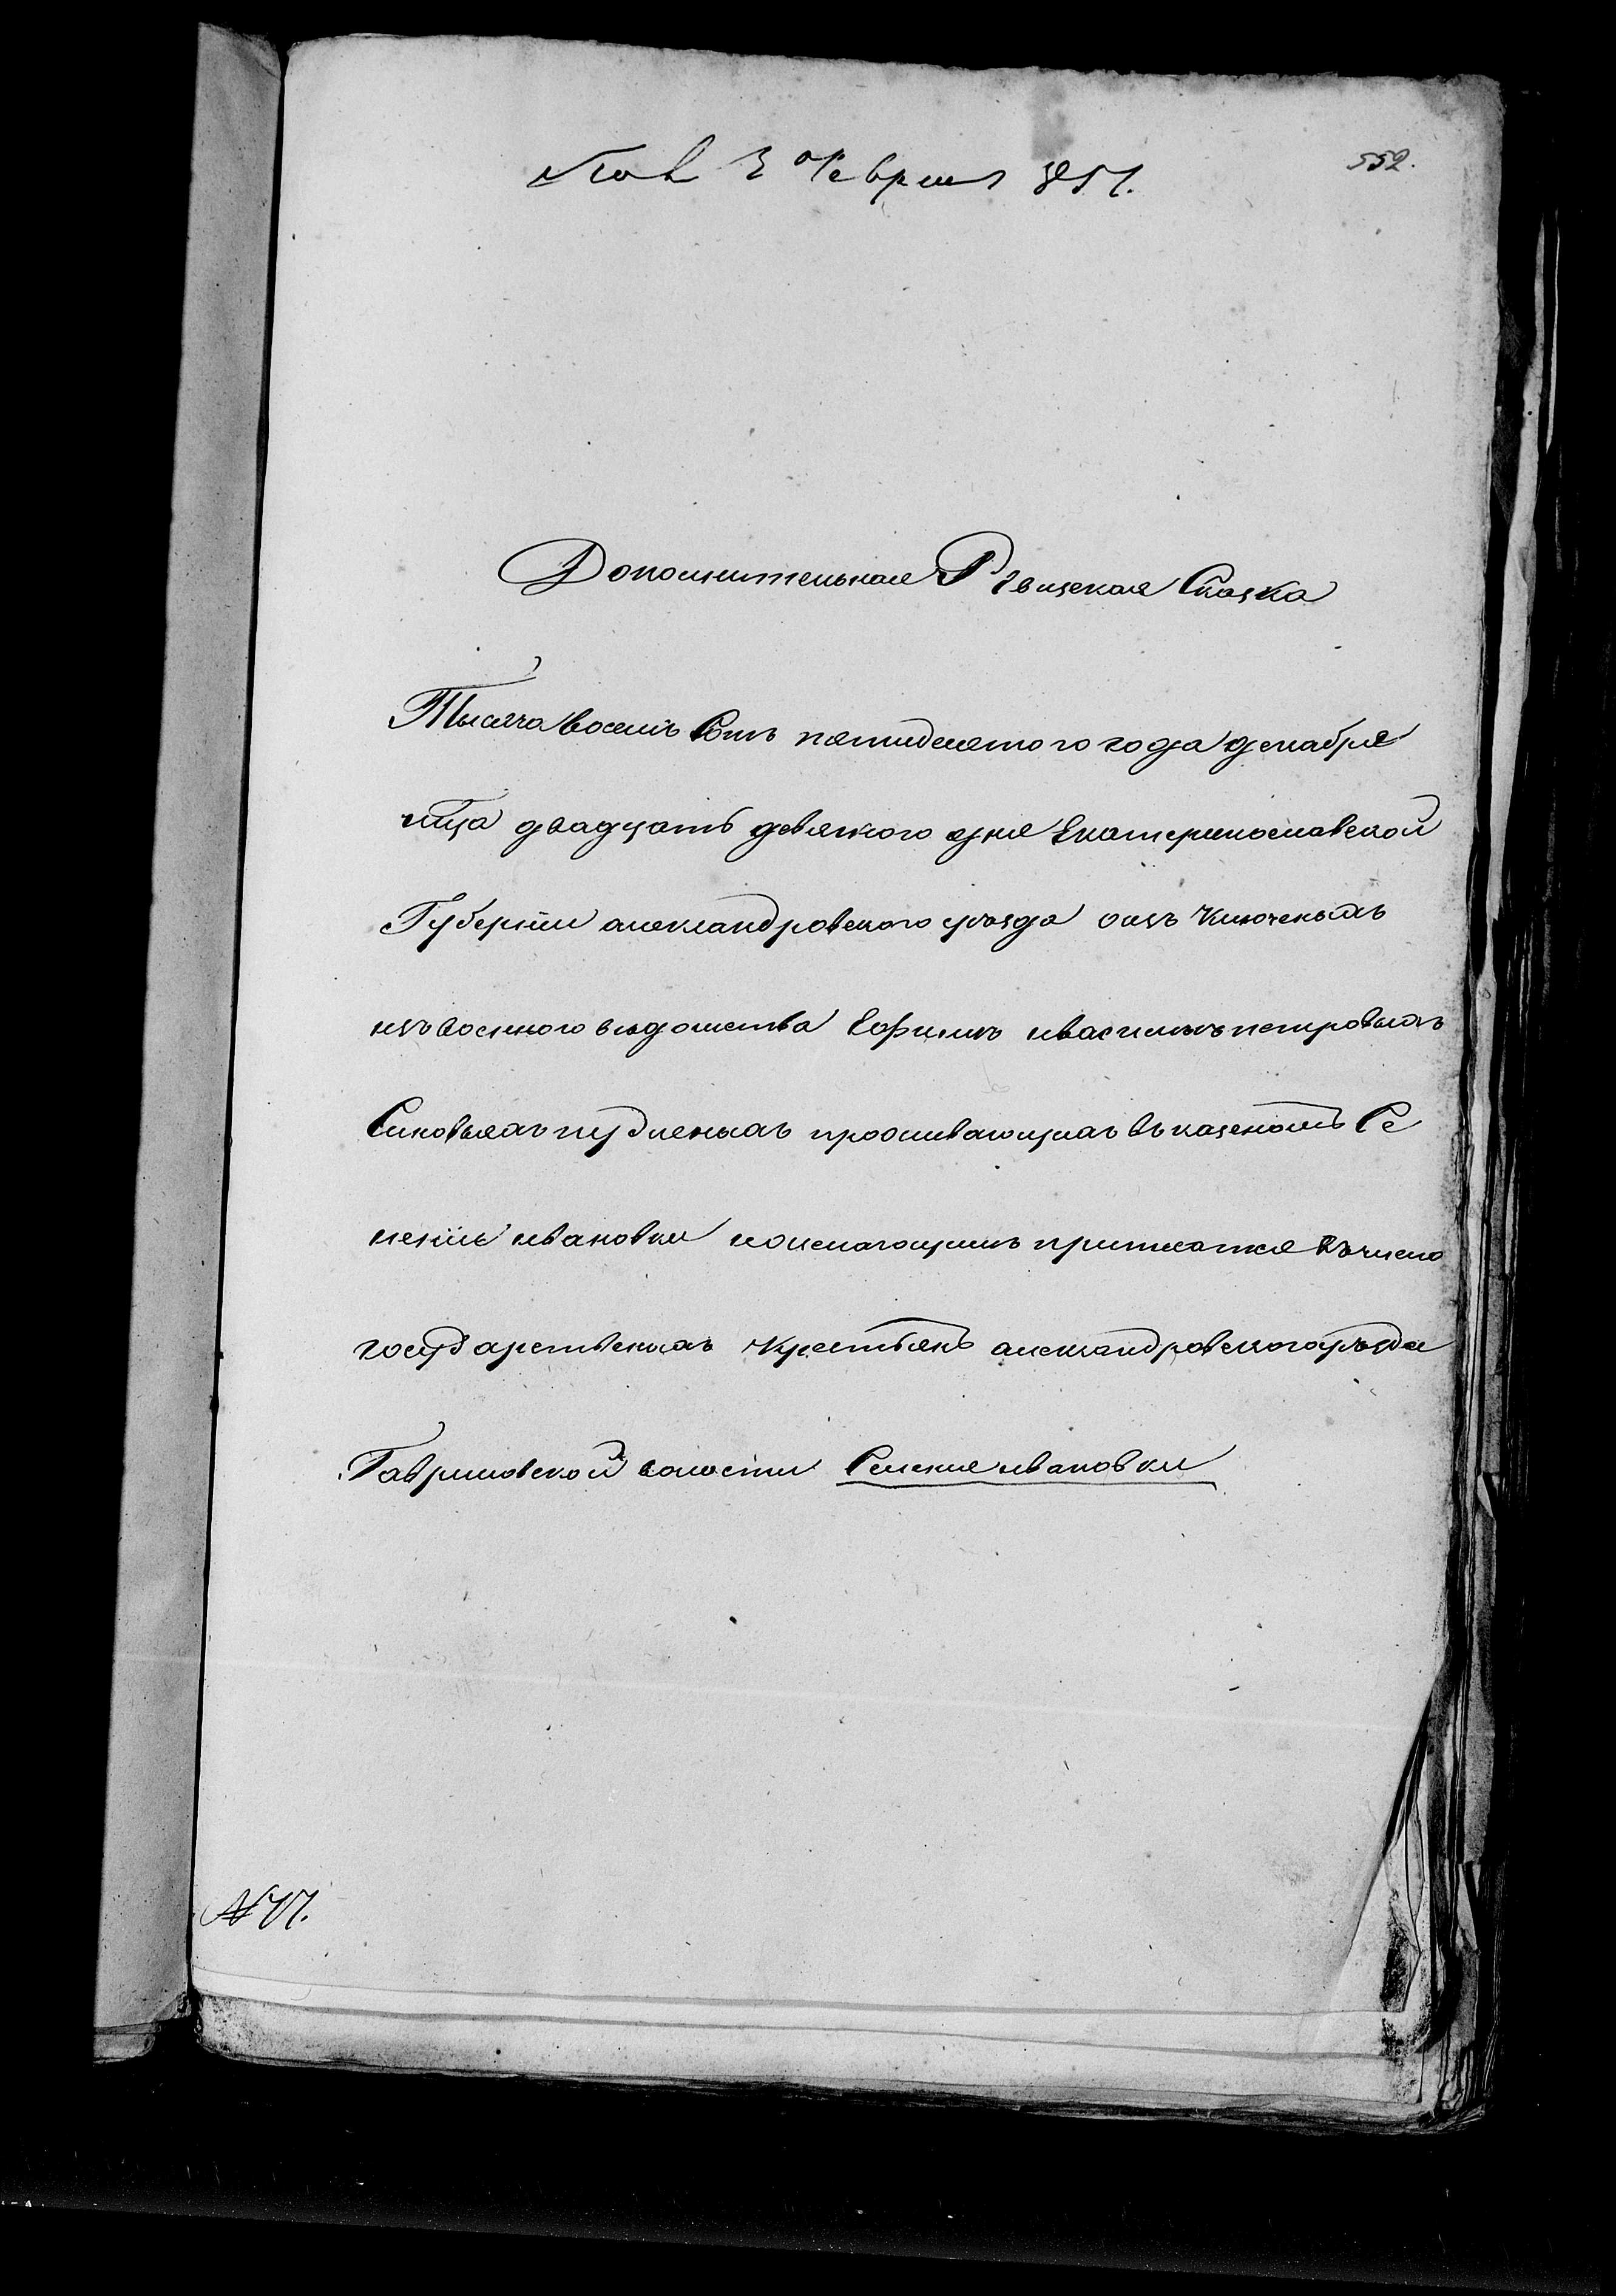 552.
3 Февраля 1851.
Дополнительная Ревизская Сказка
Тысяча восемь Сотъ пятидесятого года декабря
мца двадцать девятого дня Екатеринославской
Губернии александровского уезда объ Ключеныхъ
изъ военного ведомства Ефимъ иваснимъ петровыхъ
Синовьяхъ проживающихъ въ казеномъ Се
ление ивановки пожелающимъ приписатся въ число
государственыхъ Крестьянъ александровского уезда
Гавриловской волости Селения ивановки
№ 77.